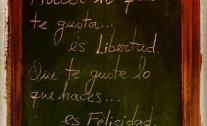 Hacer lo que
te gusta...
es Libertad.
Que te guste lo
que haces...
es Felicidad.